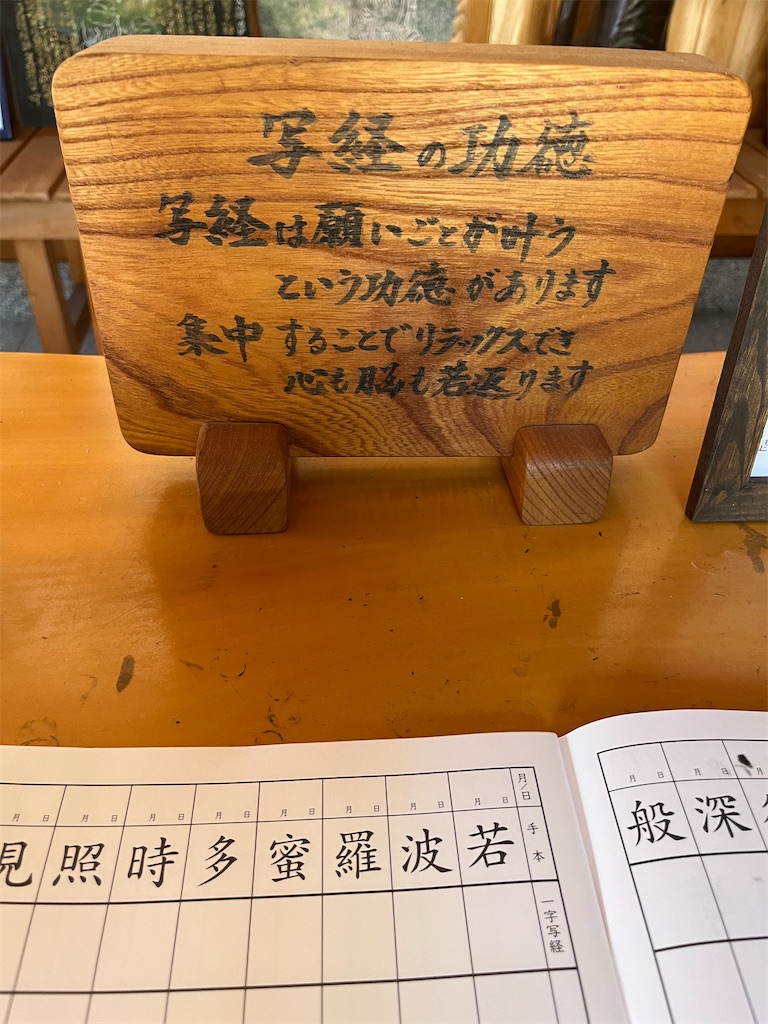 写経の功徳
写経は願いごとが叶う
という功徳があります
集中することでリラックスでき
心も脳も若返ります
月/日
手本
一字写経
月 日
若
月 日
波
月 日
羅
月 日
蜜
月 日
多
月 日
時
月 日
照
見
月 日
般
月 日
深
月